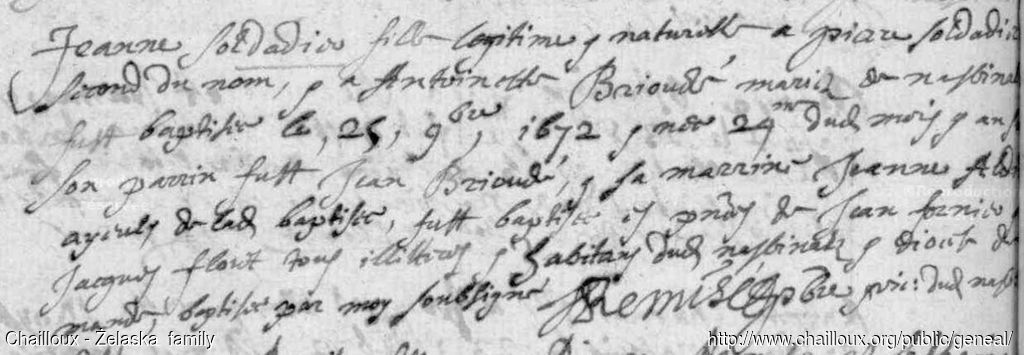 Jeanne soldadier fille legitime & naturelle a piere soldadie
second du nom, & a Antoinette Brioude mariez de nasbina
fust baptisee le, 25, 9bre, 1672 & nee 24me dud mois & an
son parrin fust Jean Brioude, & sa marrine Jeanne
ayeuls de lad baptisee, fust baptisee es pnces de Jean fornier
Jacques flourt tous illitteres & habitans dud nasbinalz & diocese de
mande, baptisee par moy soubsigne Remisé pbre vic: dud nasb
Chailloux - Želaska family
http://www.chailloux.org/public/geneal/